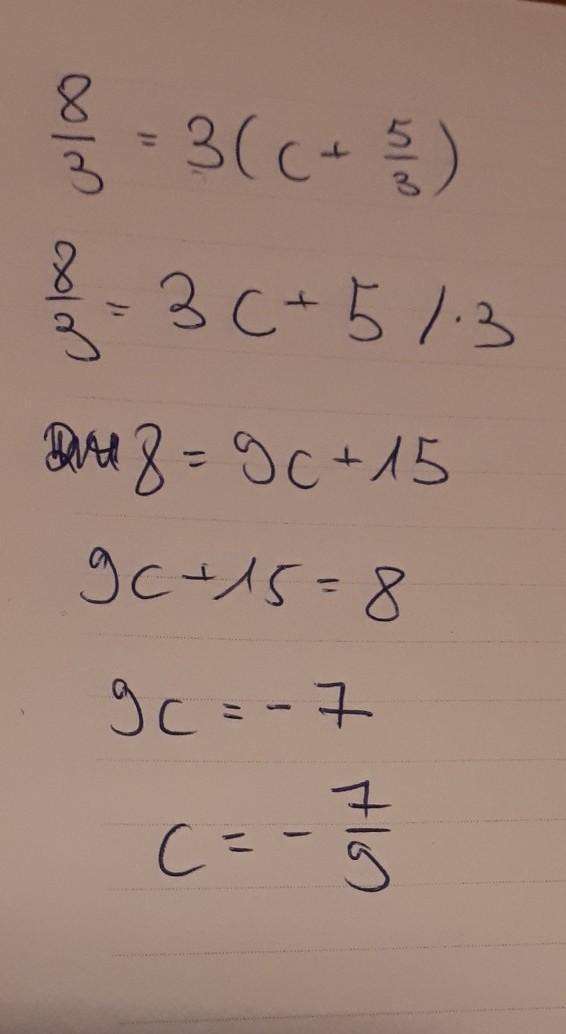 8/3 = 3(c + 5/3)
8/3 = 3c + 5 /·3
8 = 9c + 15
9c + 15 = 8
9c = -7
c = - 7/9